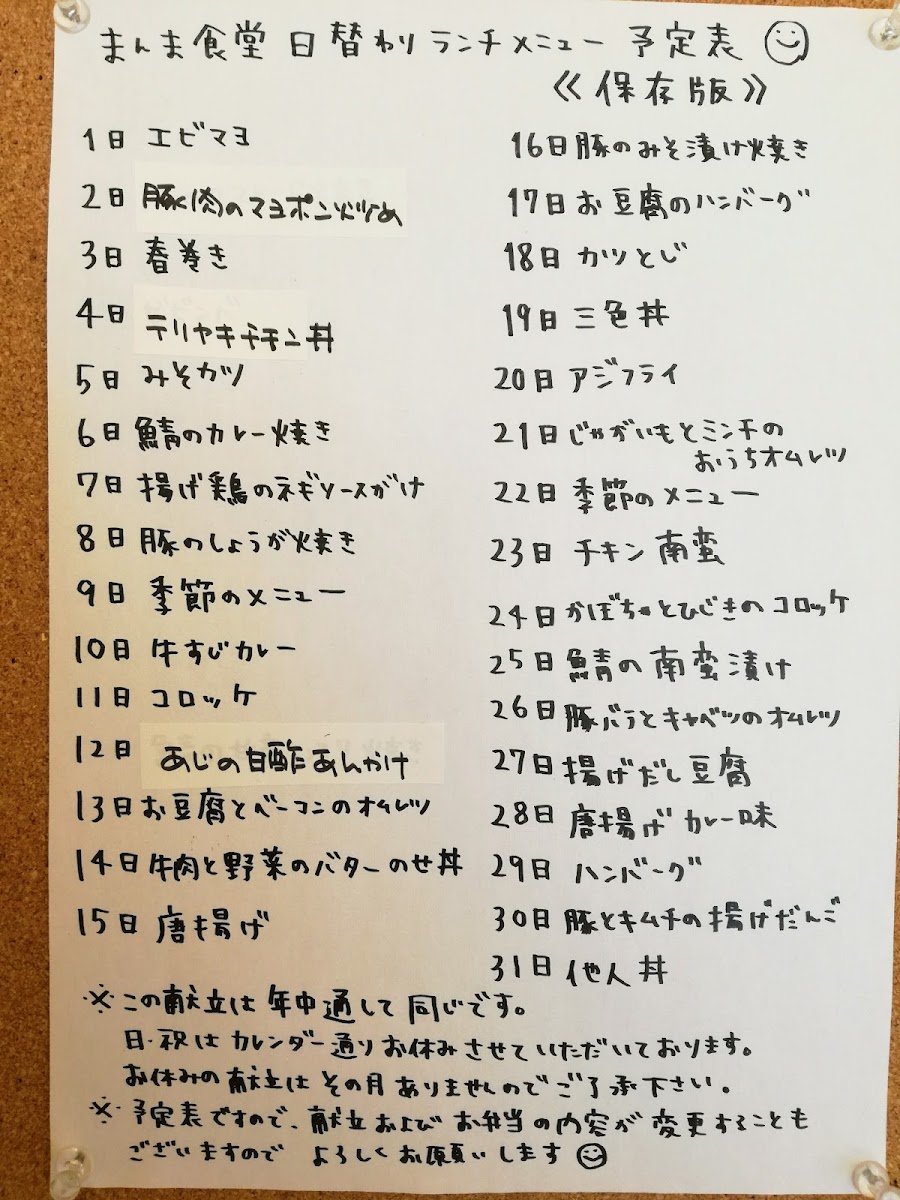 まんま食堂 日替わりランチメニュー 予定表
《保存版》
1日 エビマヨ
2日 豚肉のマヨポン炒め
3日 春巻き
4日 テリヤキチキン丼
5日 みそカツ
6日 鯖のカレー焼き
7日 揚げ鶏のネギソースがけ
8日 豚のしょうが焼き
9日 季節のメニュー
10日 牛すじカレー
11日 コロッケ
12日 あじの甘酢あんかけ
13日 お豆腐とベーコンのオムレツ
14日 牛肉と野菜のバターのせ丼
15日 唐揚げ
16日 豚のみそ漬け焼き
17日 お豆腐のハンバーグ
18日 カツとじ
19日 三色丼
20日 アジフライ
21日 じゃがいもとミンチの
おうちオムレツ
22日 季節のメニュー
23日 チキン南蛮
24日 かぼちゃとひじきのコロッケ
25日 鯖の南蛮漬け
26日 豚バラとキャベツのオムレツ
27日 揚げだし豆腐
28日 唐揚げカレー味
29日 ハンバーグ
30日 豚とキムチの揚げだんご
31日 他人丼
※この献立は年中通して同じです。
日・祝はカレンダー通りお休みさせていただいております。
お休みの献立はその月ありませんのでご了承下さい。
※予定表ですので、献立およびお弁当の内容が変更することも
ございますのでよろしくお願いします